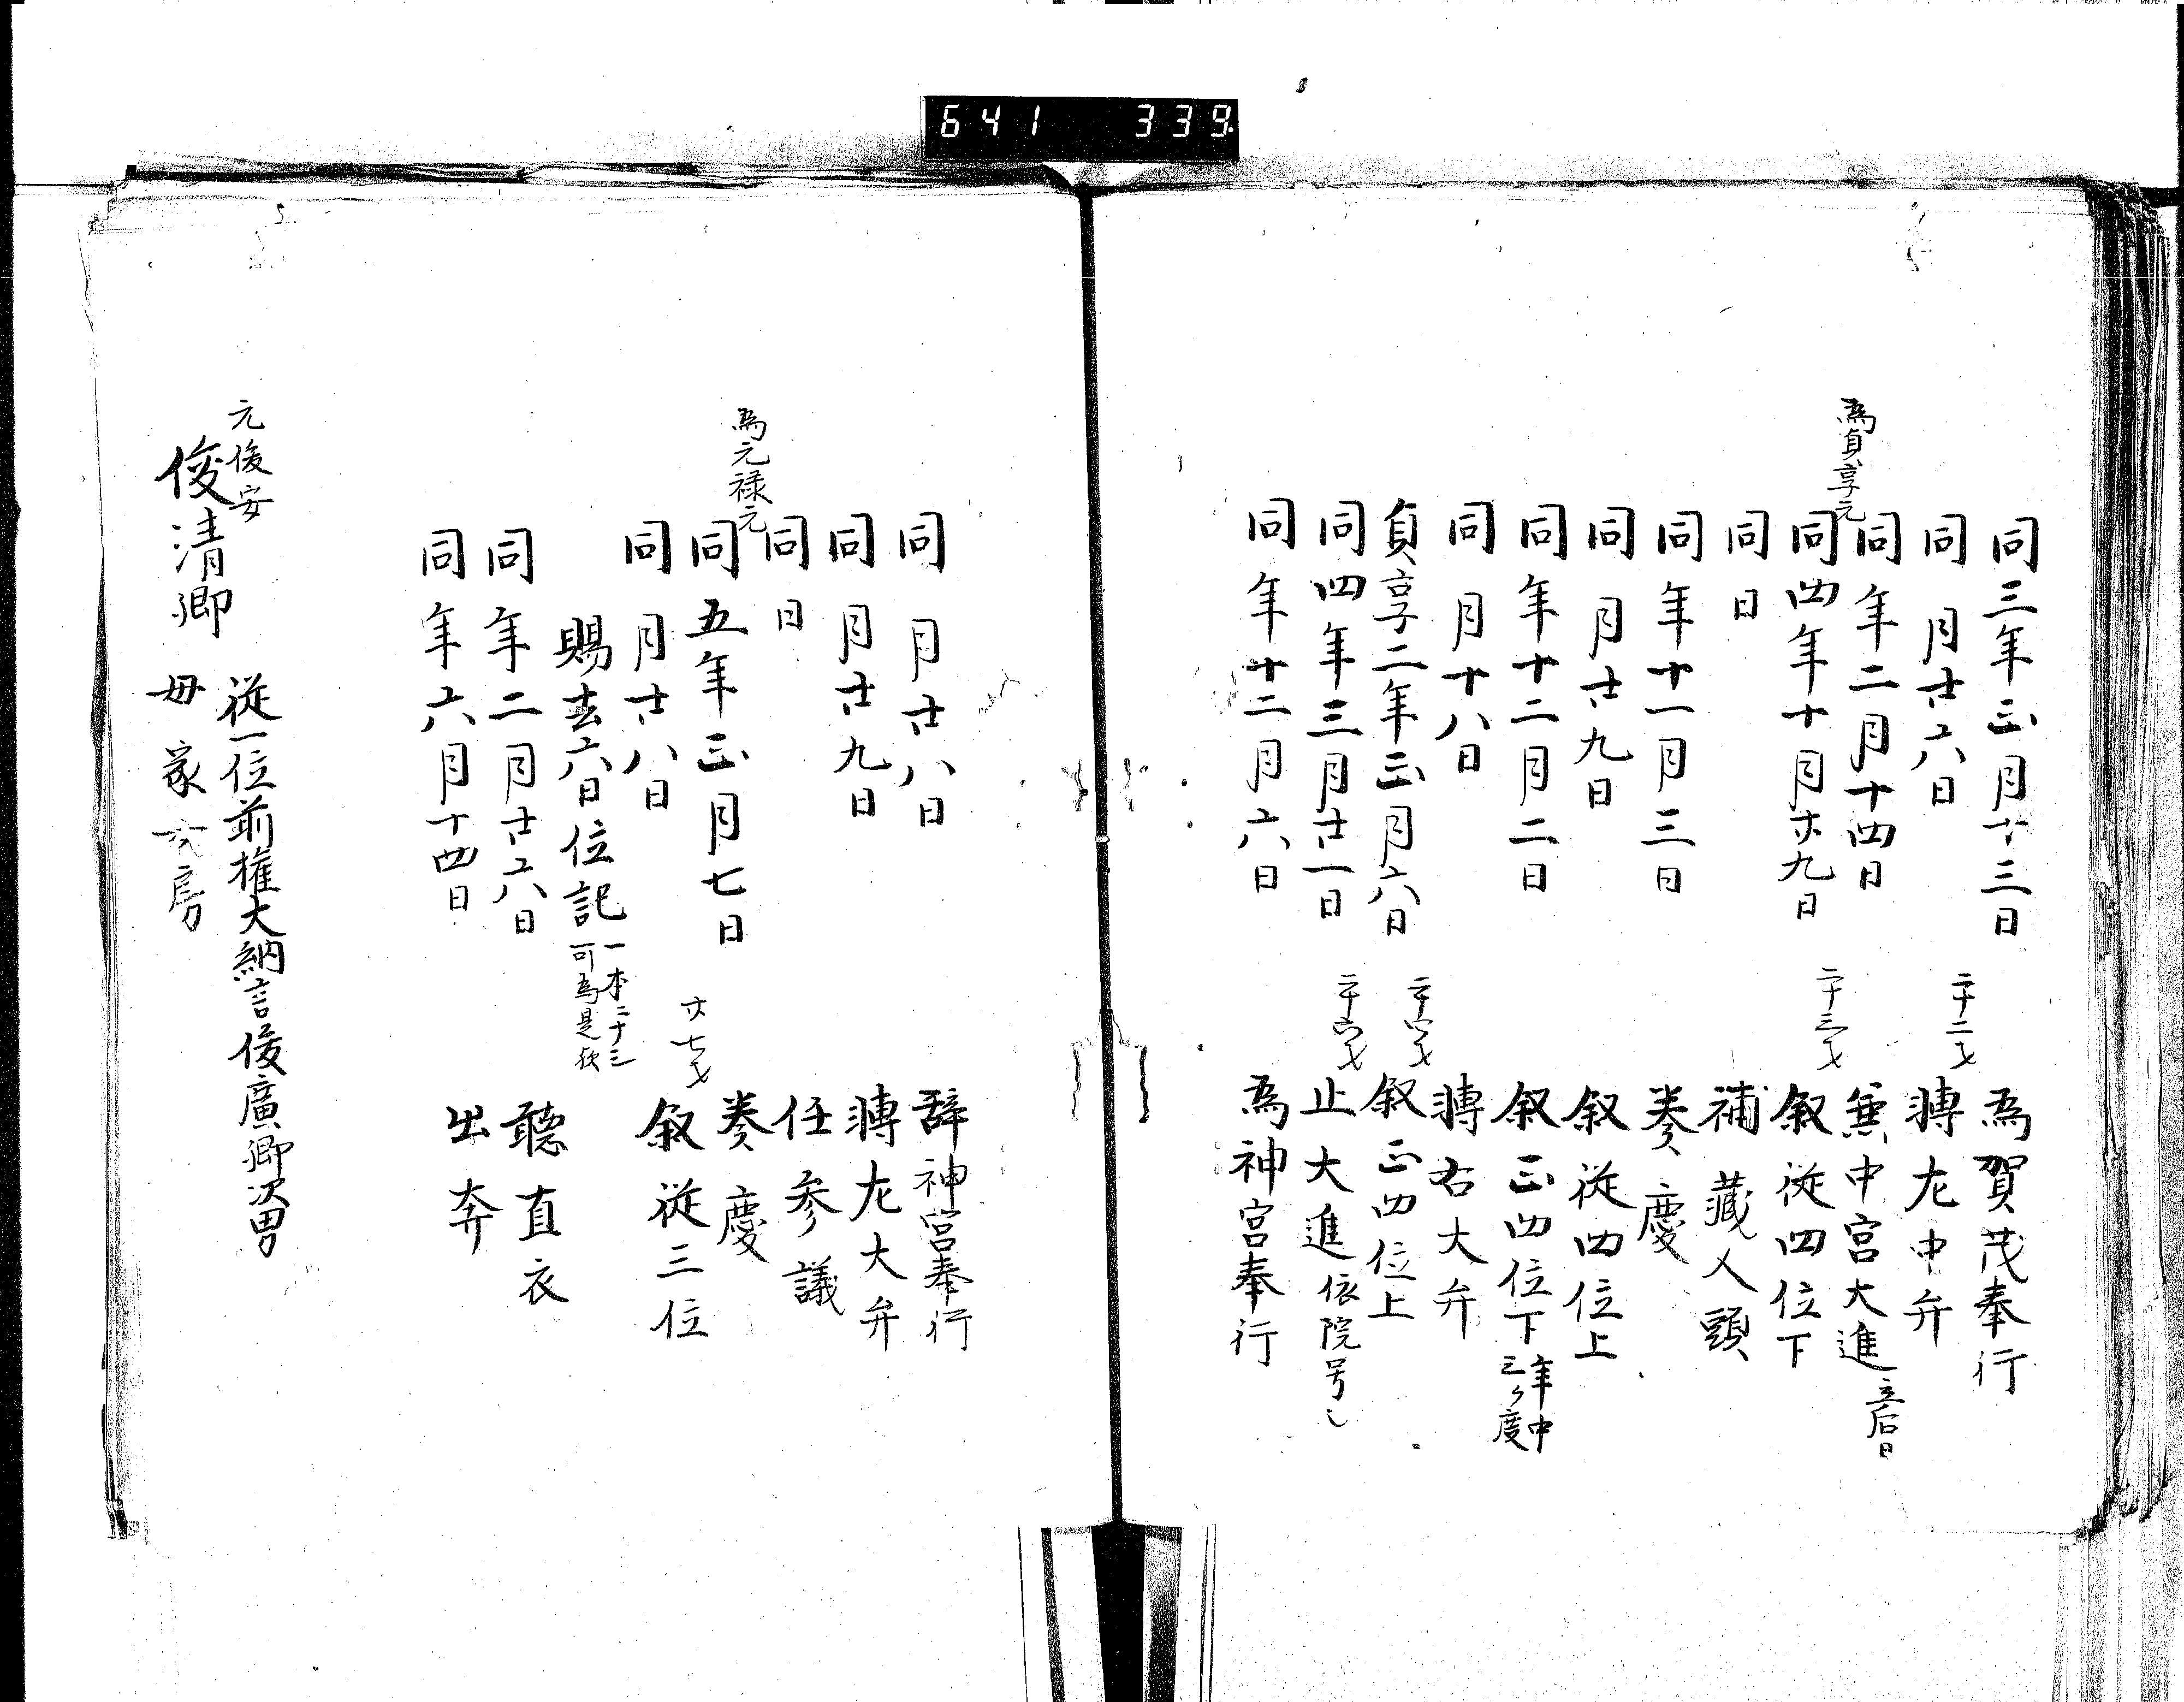 641 339
同三年正月十三日 為賀茂奉行
同月廿六日 二十二才 轉左中弁
同年二月十四日 兼中宮大進 立后日
為貞享元
同四年十月廿九日 二十三才 叙従四位下
同日 補藏人頭
同年十一月三日 奏慶
同月廿九日 叙従四位上
同年十二月二日 叙正四位下 年中三ケ度
同月十八日 轉右大弁
貞享二年正月六日 二十四才 叙正四位上
同四年三月廿一日 二十六才 止大進 依院号也
同年十二月六日 為神宮奉行
同月廿八日 辞神宮奉行
同月廿九日 轉左大弁
同日 任参議
為元禄元
同五年正月七日 奏慶
同月廿八日 廿七才 叙従三位
賜去六日位記 一本二十三可為是歟
同年二月廿六日 聽直衣
同年六月十四日 出奔
元俊安
俊清卿 従一位前権大納言俊廣卿次男
母家女房